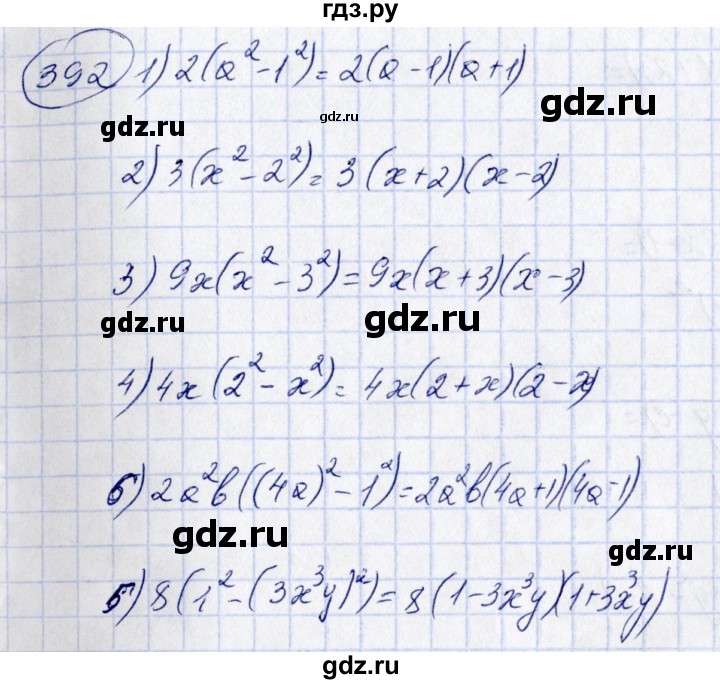 гдз.ру
392 1) 2(a² - 1²) = 2(a - 1)(a + 1)
gdz.ru gdz.ru
2) 3(x² - 2²) = 3(x + 2)(x - 2)
3) 9x(x² - 3²) = 9x(x + 3)(x - 3)
gdz.ru gdz.ru
4) 4x(2² - x²) = 4x(2 + x)(2 - x)
5) 2a²b((4a)² - 1²) = 2a²b(4a + 1)(4a - 1)
gdz.ru
gdz.ru
5) 8(1² - (3x³y)²) = 8(1 - 3x³y)(1 + 3x³y)
gdz.ru